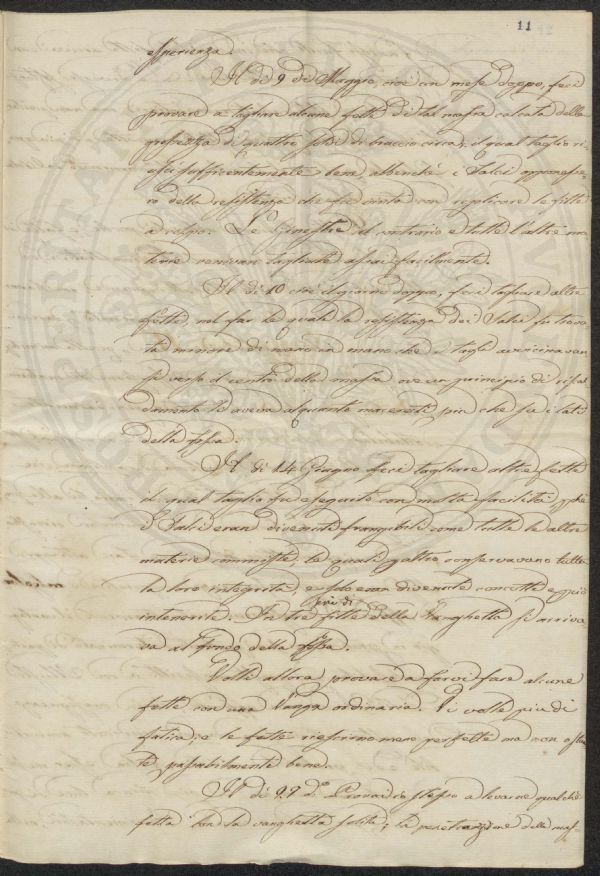 11
esperienza.
Il dì 9 di Maggio, cioè un mese doppo, feci
provare a tagliare alcune fette di tal massa calcata della
grossezza di quattro soldi di braccio circa, il qual taglio ri-
uscì sufficentemente bene, abbenchè i Salci opponesse-
ro della resistenza che fu vinta con replicare le fitte
a colpo. Le Ginestre al contrario e tutte l'altre ma-
terie venivan tagliate assai facilmente.
Il dì 10 cioè il giorno doppo, feci tagliare altre
fette, nel far le quali la resistenza dei Salci fu trova-
ta minore di mano in mano che i tagli avvicinavan
si verso il centro della massa ove un principio di riscal
damento li aveva alquanto macerati più che fu i lati
della fossa.
Il dì 14 Giugno feci tagliare altre fette
il qual taglio fu eseguito con molta facilità, p.chè
i Salci eran divenuti frangibili come tutte le altre
materie commiste, le quali p. altro conservavano tutta
la loro integrità, e solo eran divenute concotte e più
intenerite. In tre fitte della Vanghetta si arriva-
va al fondo della fossa.
Volli allora provare a farvi fare alcune
fette con una Vanga ordinaria. Vi volle più di
fatica, e le fette riescirono meno perfette ma non ostan
te passabilmente bene.
Il dì 27 d.º Provai io stesso a levarne qualche
fetta con la vanghetta solita; la penetrazione della mas-